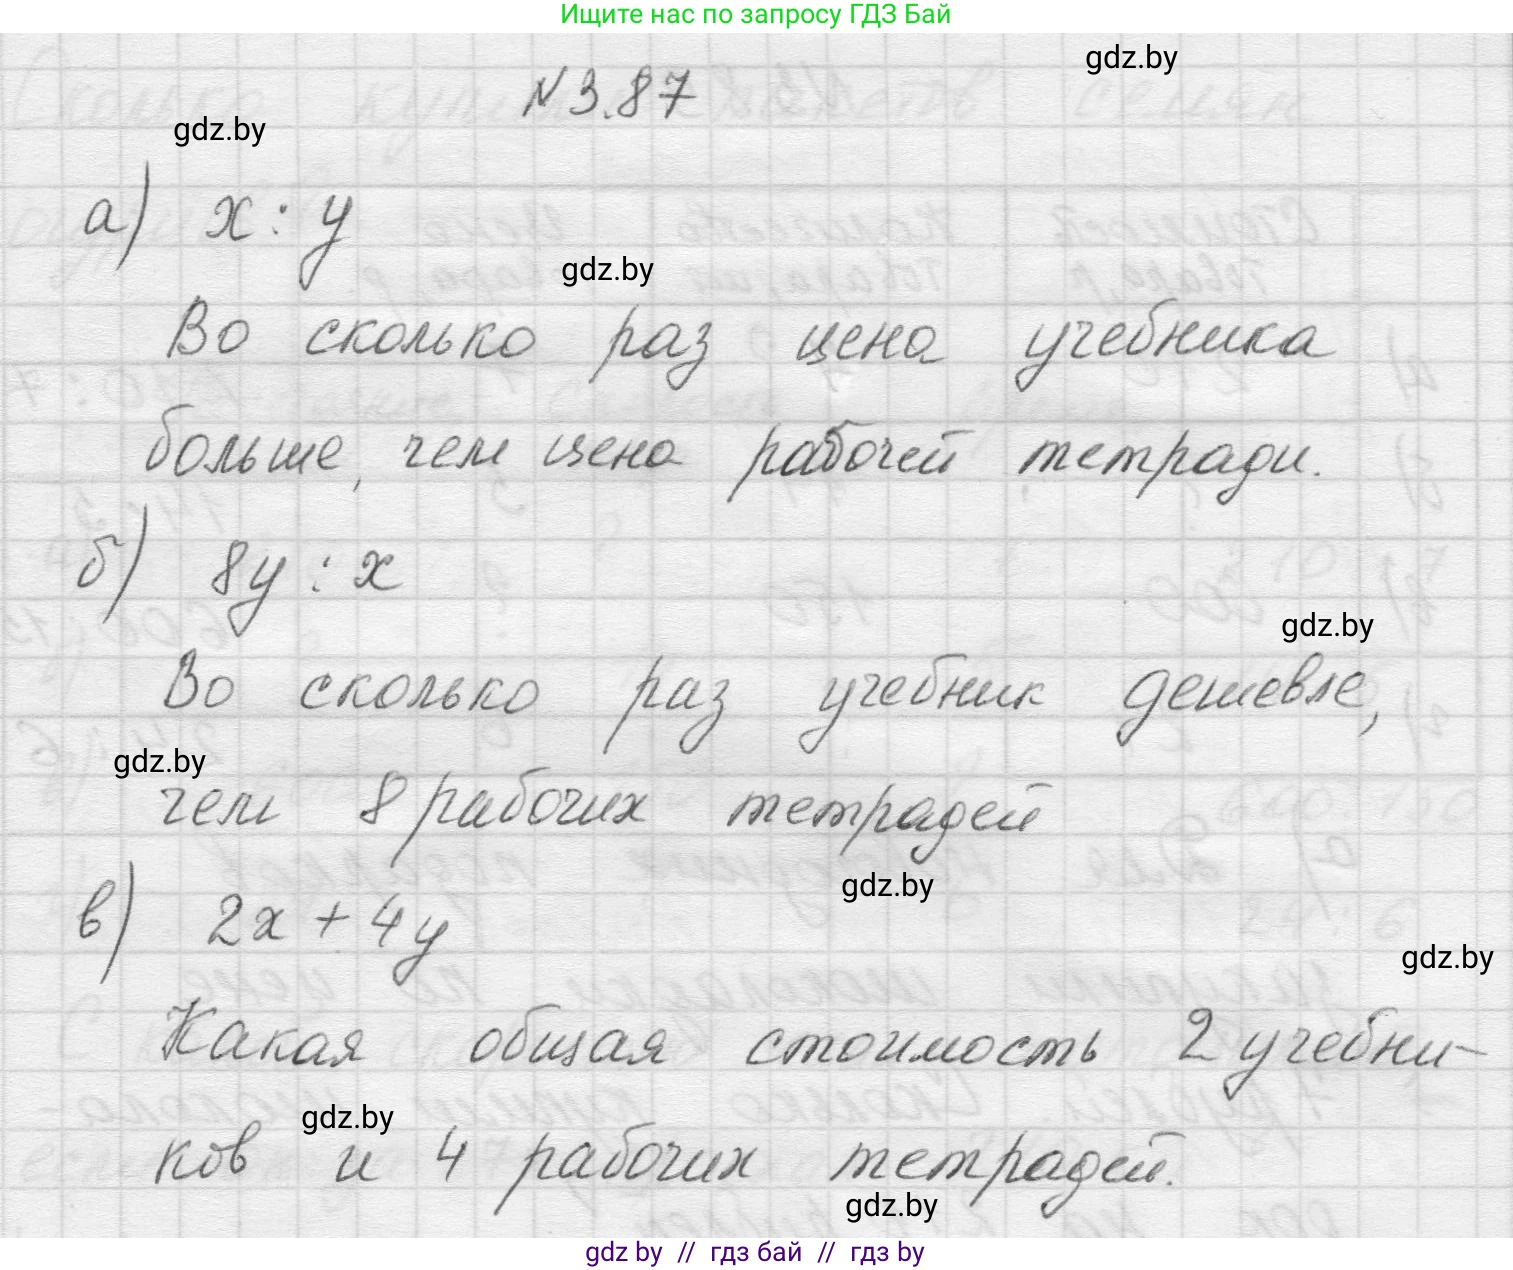 Ищите нас по запросу ГДЗ Бай
gdz.by
N 3.87
gdz.by
а) x : y
gdz.by
Во сколько раз цена учебника
больше, чем цена рабочей тетради.
б) 8y : x
gdz.by
Во сколько раз учебник дешевле,
gdz.by
чем 8 рабочих тетрадей
gdz.by
в) 2x + 4y
gdz.by
Какая общая стоимость 2 учебни-
gdz.by
ков и 4 рабочих тетрадей.
gdz.by
gdz by // гдз бай // гдз by